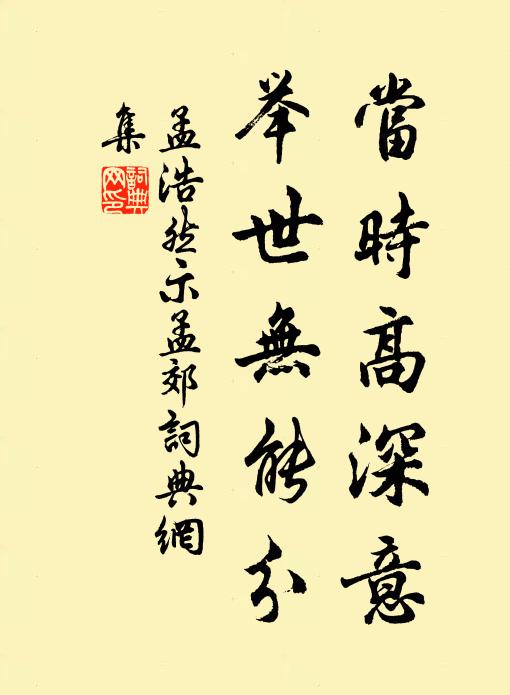 當時高深意
舉世無能分
孟浩然示孟郊詞典網
集
詞典
网印